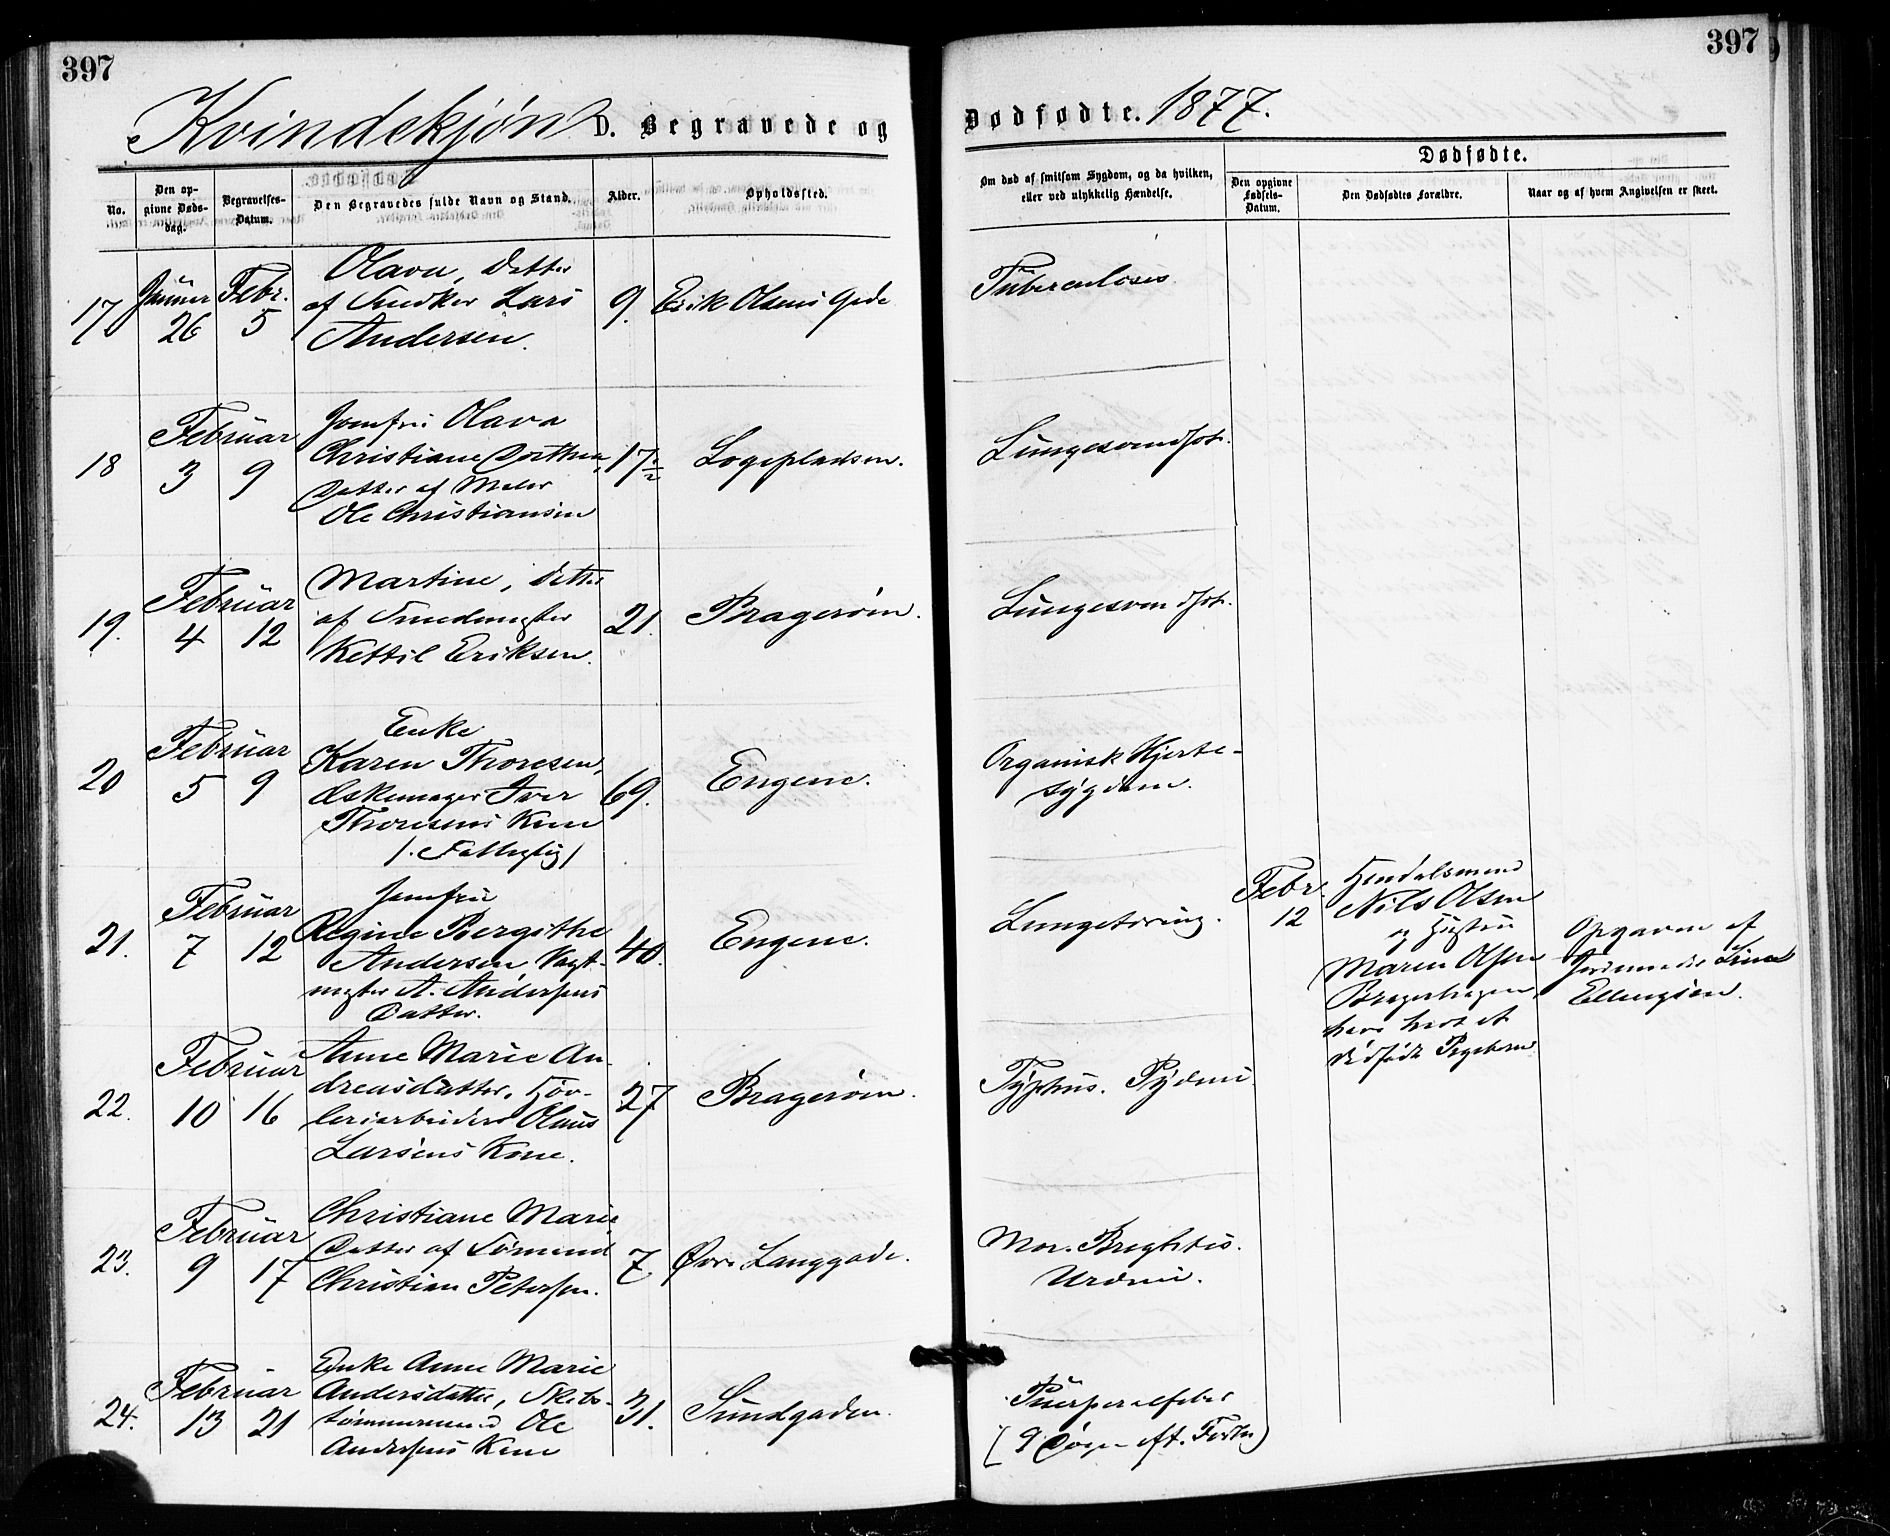 397
397
Kvindekjøn D. Begravede og Dødfødte. 1877.
No.
Den op-
givne Døds-
dag.
Begravelses-
Datum.
Den Begravedes fulde Navn og Stand.
Alder.
Opholdssted.
Om død af smitsom Sygdom, og da hvilken,
eller ved ulykkelig Hændelse.
Dødfødte.
Den opgivne
Fødsels-
Datum.
Den Dødfødtes Forældre.
Naar og af hvem Angivelsen er skeet.
17
Januar
26
Febr.
5
Olava, Datter
af Snedker Lars
Andersen.
9.
Erik Olsens Gade
Tuberculosis
18
Februar
3 9
Jomfru Olava
Christiane Dorthea,
Datter af Maler
Ole Christiansen
17 ½
Logepladsen.
Lungesvindsot.
19.
Februar
4 12
Martine, Datter
af Smedmester
Kettil Eriksen.
21.
Bragerøen.
Lungesvindsot.
20
Februar
5 9
Enke
Karen Thoresen,
Æskemager Iver
Thoresens Kone
/: Fattiglig /
69.
Engene.
Organisk Hjerte-
sygdom.
21.
Februar
7 12
Jomfru
Regine Bergithe
Andersen Vagt-
mester A. Andersens
Datter.
40.
Engene.
Lungetæring.
Febr.
12
Nils Olsen
og Hustru
Maren Olsen
Bragerhagen,
have havt et
dødfødt Pigebarn
Opgaven af
Jordemoder
Ellingsen.
22.
Februar
10 16
Anne Marie An-
dreasdatter, Høv-
leriarbeider Olaus
Larsens Kone.
27
Bragerøen.
Typhus. Pyæmi
23.
Februar
9 17
Christiane Marie
Datter af Sømand
Christian Petersen.
7
Øvre Langgade.
Mor. Brightis.
Uræmi.
24.
Februar
13 21
Enke Anne Marie
Andersdatter, Skibs-
tømmermand Ole
Andersens Kone
31.
Sundgaden.
Puerperalfeber
(9 Dage eft. Føds.)